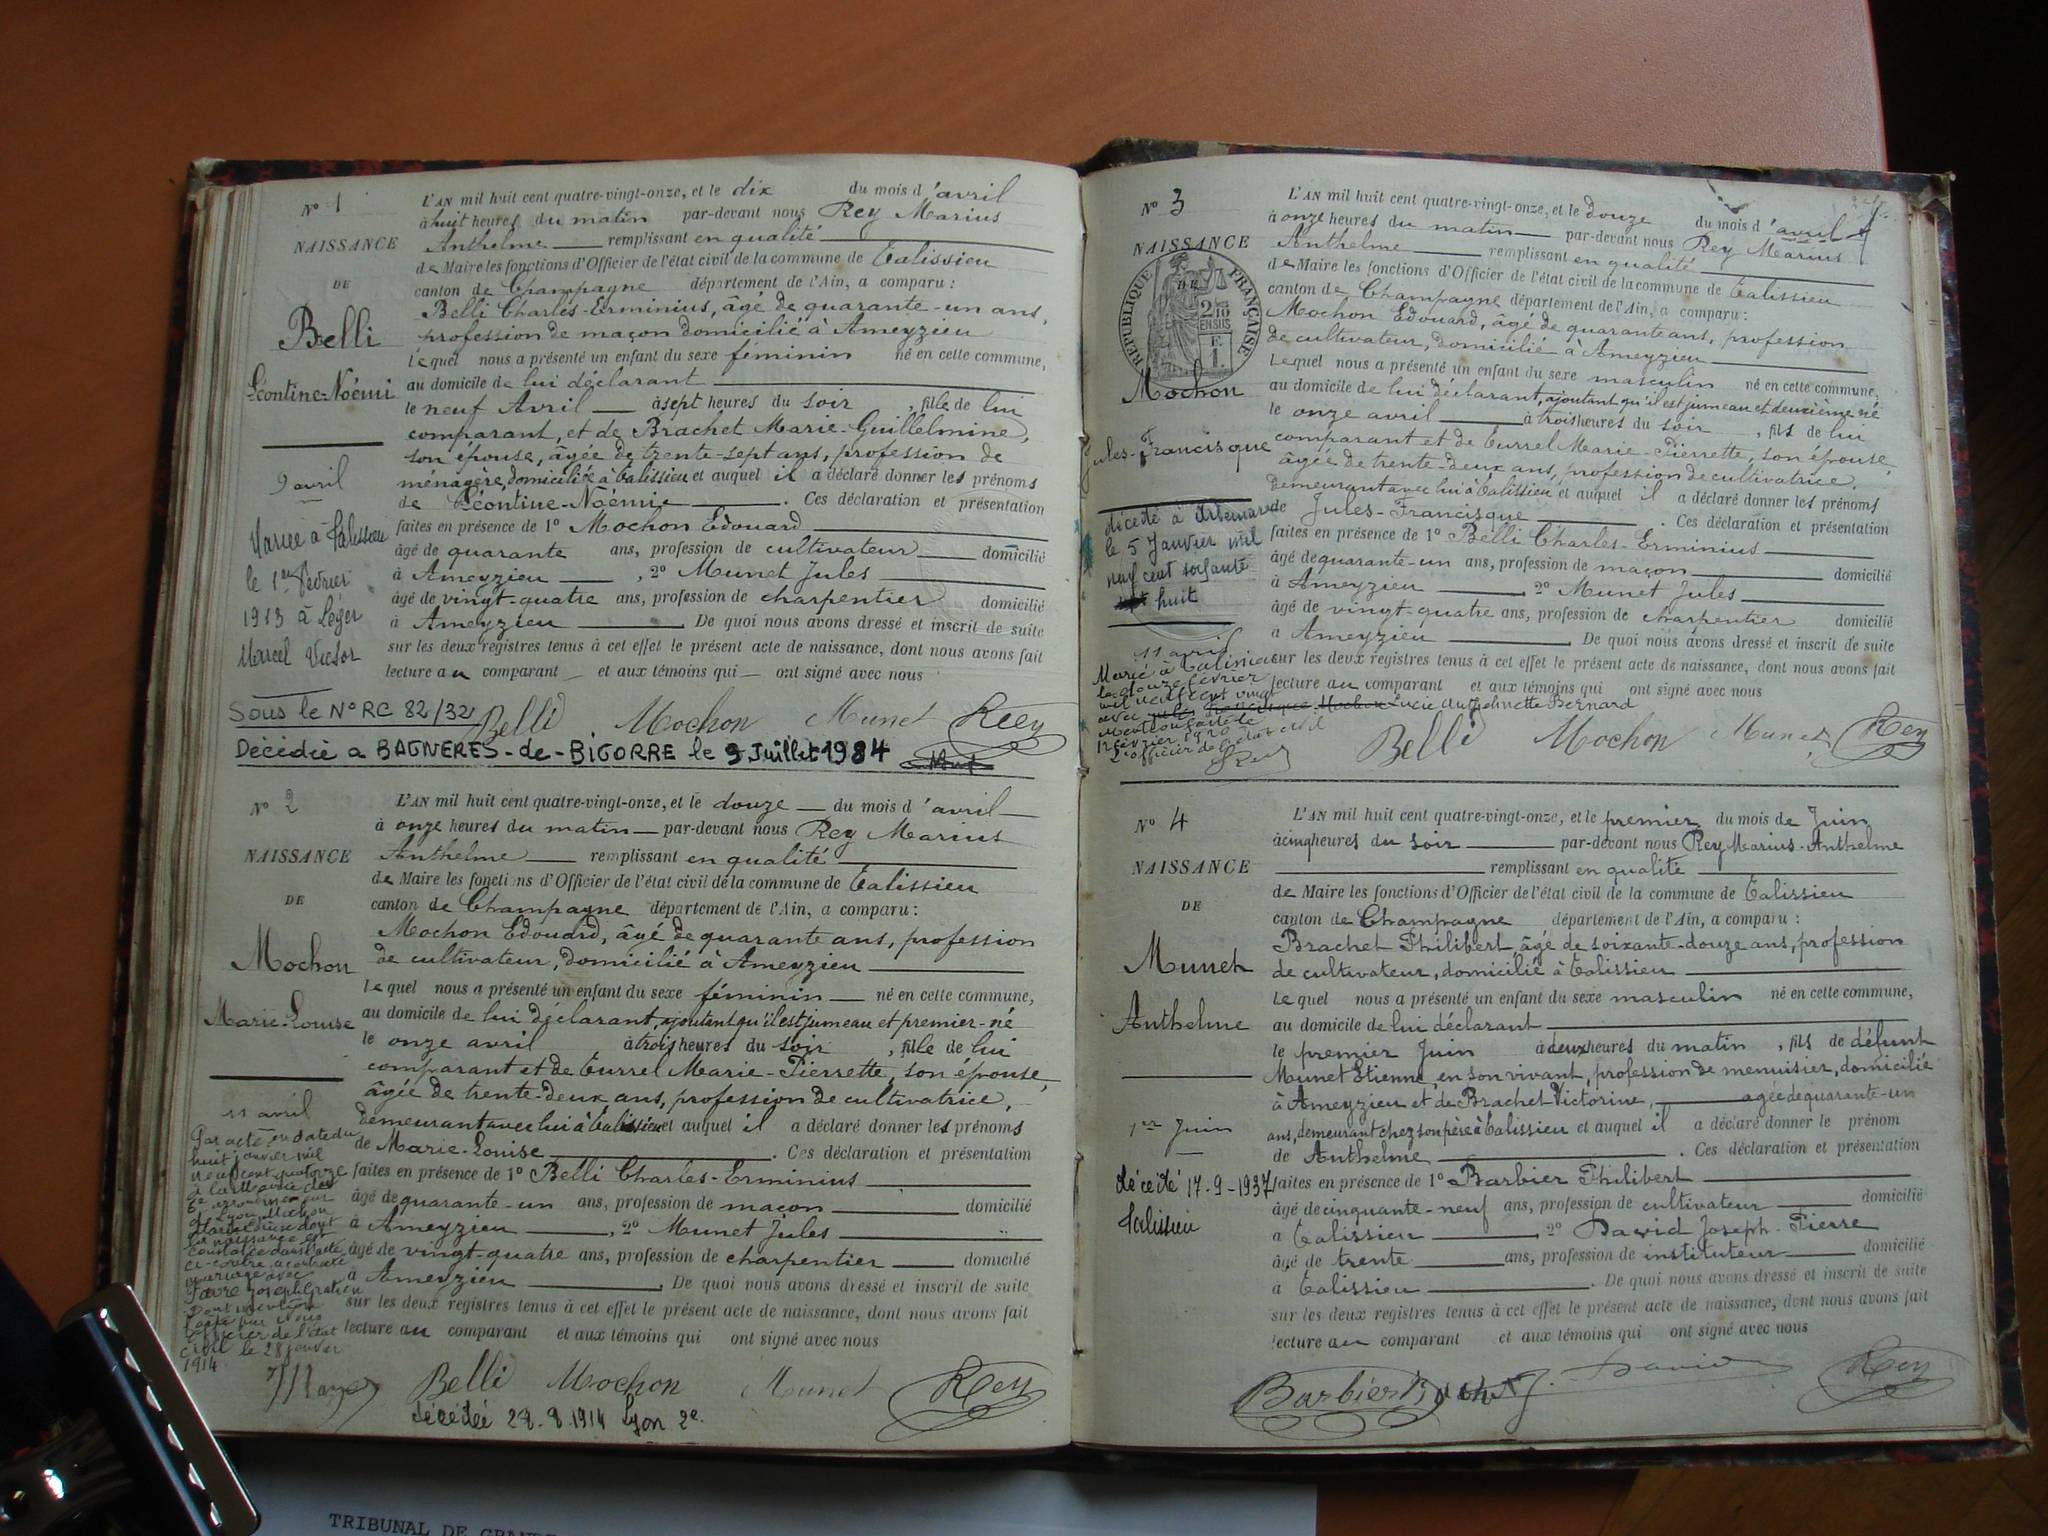 N° 1
NAISSANCE
DE
Belli
Léontine-Noémi
9 avril
Mariée à Talissieu
le 1er Février
1913 à Léger
Marcel Victor
L'AN mil huit cent quatre-vingt-onze, et le dix du mois d'avril
à huit heures du matin par-devant nous Rey Marius
Anthelme remplissant en qualité
de Maire les fonctions d'Officier de l'état civil de la commune de Talissieu
canton de Champagne département de l'Ain, a comparu :
Belli Charles-Erminius, âgé de quarante-un ans,
profession de maçon domicilié à Ameyzieu
Lequel nous a présenté un enfant du sexe féminin né en cette commune,
au domicile de lui déclarant
le neuf Avril à sept heures du soir, fille de lui
comparant, et de Brachet Marie-Guillelmine,
son épouse, âgée de trente-sept ans, profession de
ménagère, domiciliée à Talissieu et auquel il a déclaré donner les prénoms
de Léontine-Noémie. Ces déclaration et présentation
faites en présence de 1° Mochon Edouard
âgé de quarante ans, profession de cultivateur domicilié
à Ameyzieu, 2° Munet Jules
âgé de vingt-quatre ans, profession de charpentier domicilié
à Ameyzieu. De quoi nous avons dressé et inscrit de suite
sur les deux registres tenus à cet effet le présent acte de naissance, dont nous avons fait
lecture au comparant et aux témoins qui ont signé avec nous
Sous le N° RC 82/32 Belli Mochon Munet Rey
Décédée a BAGNERES-de-BIGORRE le 9 Juillet 1984
N° 2
NAISSANCE
DE
Mochon
Marie-Louise
11 avril
Par acte en date du
huit janvier mil
neuf cent quatorze
à la Mairie du
6e arrondissement
de Lyon, Mochon
Marie Louise dont
la naissance est
constatée dans l'acte
ci-contre, a contracté
mariage avec
Favre Joseph Gratien
Dont mention
faite par Nous
officier de l'état
civil le 28 janvier
1914
L'AN mil huit cent quatre-vingt-onze, et le douze du mois d'avril
à onze heures du matin par-devant nous Rey Marius
Anthelme remplissant en qualité
de Maire les fonctions d'Officier de l'état civil de la commune de Talissieu
canton de Champagne département de l'Ain, a comparu :
Mochon Edouard, âgé de quarante ans, profession
de cultivateur, domicilié à Ameyzieu
Lequel nous a présenté un enfant du sexe féminin né en cette commune,
au domicile de lui déclarant, ajoutant qu'il est jumeau et premier-né
le onze avril à trois heures du soir, fille de lui
comparant et de Turrel Marie-Pierrette, son épouse,
âgée de trente-deux ans, profession de cultivatrice,
demeurant avec lui à Talissieu et auquel il a déclaré donner les prénoms
de Marie-Louise. Ces déclaration et présentation
faites en présence de 1° Belli Charles-Erminius
âgé de quarante-un ans, profession de maçon domicilié
à Ameyzieu, 2° Munet Jules
âgé de vingt-quatre ans, profession de charpentier domicilié
à Ameyzieu. De quoi nous avons dressé et inscrit de suite
sur les deux registres tenus à cet effet le présent acte de naissance, dont nous avons fait
lecture au comparant et aux témoins qui ont signé avec nous
Belli Mochon Munet Rey
décédée 28.8.1914 Lyon 2e.
N° 3
NAISSANCE
DE
REPUBLIQUE FRANÇAISE
2/10
EN SUS
F.
1.
Mochon
Jules-Francisque
décédé à Artemare
le 5 Janvier mil
neuf cent soixante
huit
11 avril
Marié à Talissieu
le douze février
mil neuf cent vingt
avec Lucie Antoinette Bernard
Mention faite le
12 février 1920
L'officier de l'état civil
Rey
L'AN mil huit cent quatre-vingt-onze, et le douze du mois d'avril
à onze heures du matin par-devant nous Rey Marius
Anthelme remplissant en qualité
de Maire les fonctions d'Officier de l'état civil de la commune de Talissieu
canton de Champagne département de l'Ain, a comparu :
Mochon Edouard, âgé de quarante ans, profession
de cultivateur, domicilié à Ameyzieu
Lequel nous a présenté un enfant du sexe masculin né en cette commune,
au domicile de lui déclarant, ajoutant qu'il est jumeau et deuxième né
le onze avril à trois heures du soir, fils de lui
comparant et de Turrel Marie-Pierrette, son épouse,
âgée de trente-deux ans, profession de cultivatrice,
demeurant avec lui à Talissieu et auquel il a déclaré donner les prénoms
de Jules-Francisque. Ces déclaration et présentation
faites en présence de 1° Belli Charles-Erminius
âgé de quarante-un ans, profession de maçon domicilié
à Ameyzieu 2° Munet Jules
âgé de vingt-quatre ans, profession de charpentier domicilié
à Ameyzieu. De quoi nous avons dressé et inscrit de suite
sur les deux registres tenus à cet effet le présent acte de naissance, dont nous avons fait
lecture au comparant et aux témoins qui ont signé avec nous
Belli Mochon Munet Rey
N° 4
NAISSANCE
DE
Munet
Anthelme
1er Juin
décédé 17-9-1937
Talissieu
L'AN mil huit cent quatre-vingt-onze, et le premier du mois de Juin
à cinq heures du soir par-devant nous Rey Marius-Anthelme
remplissant en qualité
de Maire les fonctions d'Officier de l'état civil de la commune de Talissieu
canton de Champagne département de l'Ain, a comparu :
Brachet Philibert, âgé de soixante-douze ans, profession
de cultivateur, domicilié à Talissieu
Lequel nous a présenté un enfant du sexe masculin né en cette commune,
au domicile de lui déclarant
le premier Juin à deux heures du matin, fils de défunt
Munet Etienne, en son vivant, profession de menuisier, domicilié
à Ameyzieu et de Brachet Victorine, agée de quarante-un
ans, demeurant chez son père à Talissieu et auquel il a déclaré donner le prénom
de Anthelme. Ces déclaration et présentation
faites en présence de 1° Barbier Philibert
âgé de cinquante-neuf ans, profession de cultivateur domicilié
à Talissieu 2° David Joseph-Pierre
âgé de trente ans, profession de instituteur domicilié
à Talissieu. De quoi nous avons dressé et inscrit de suite
sur les deux registres tenus à cet effet le présent acte de naissance, dont nous avons fait
lecture au comparant et aux témoins qui ont signé avec nous
Barbier Brachet J. David Rey
TRIBUNAL DE GRANDE